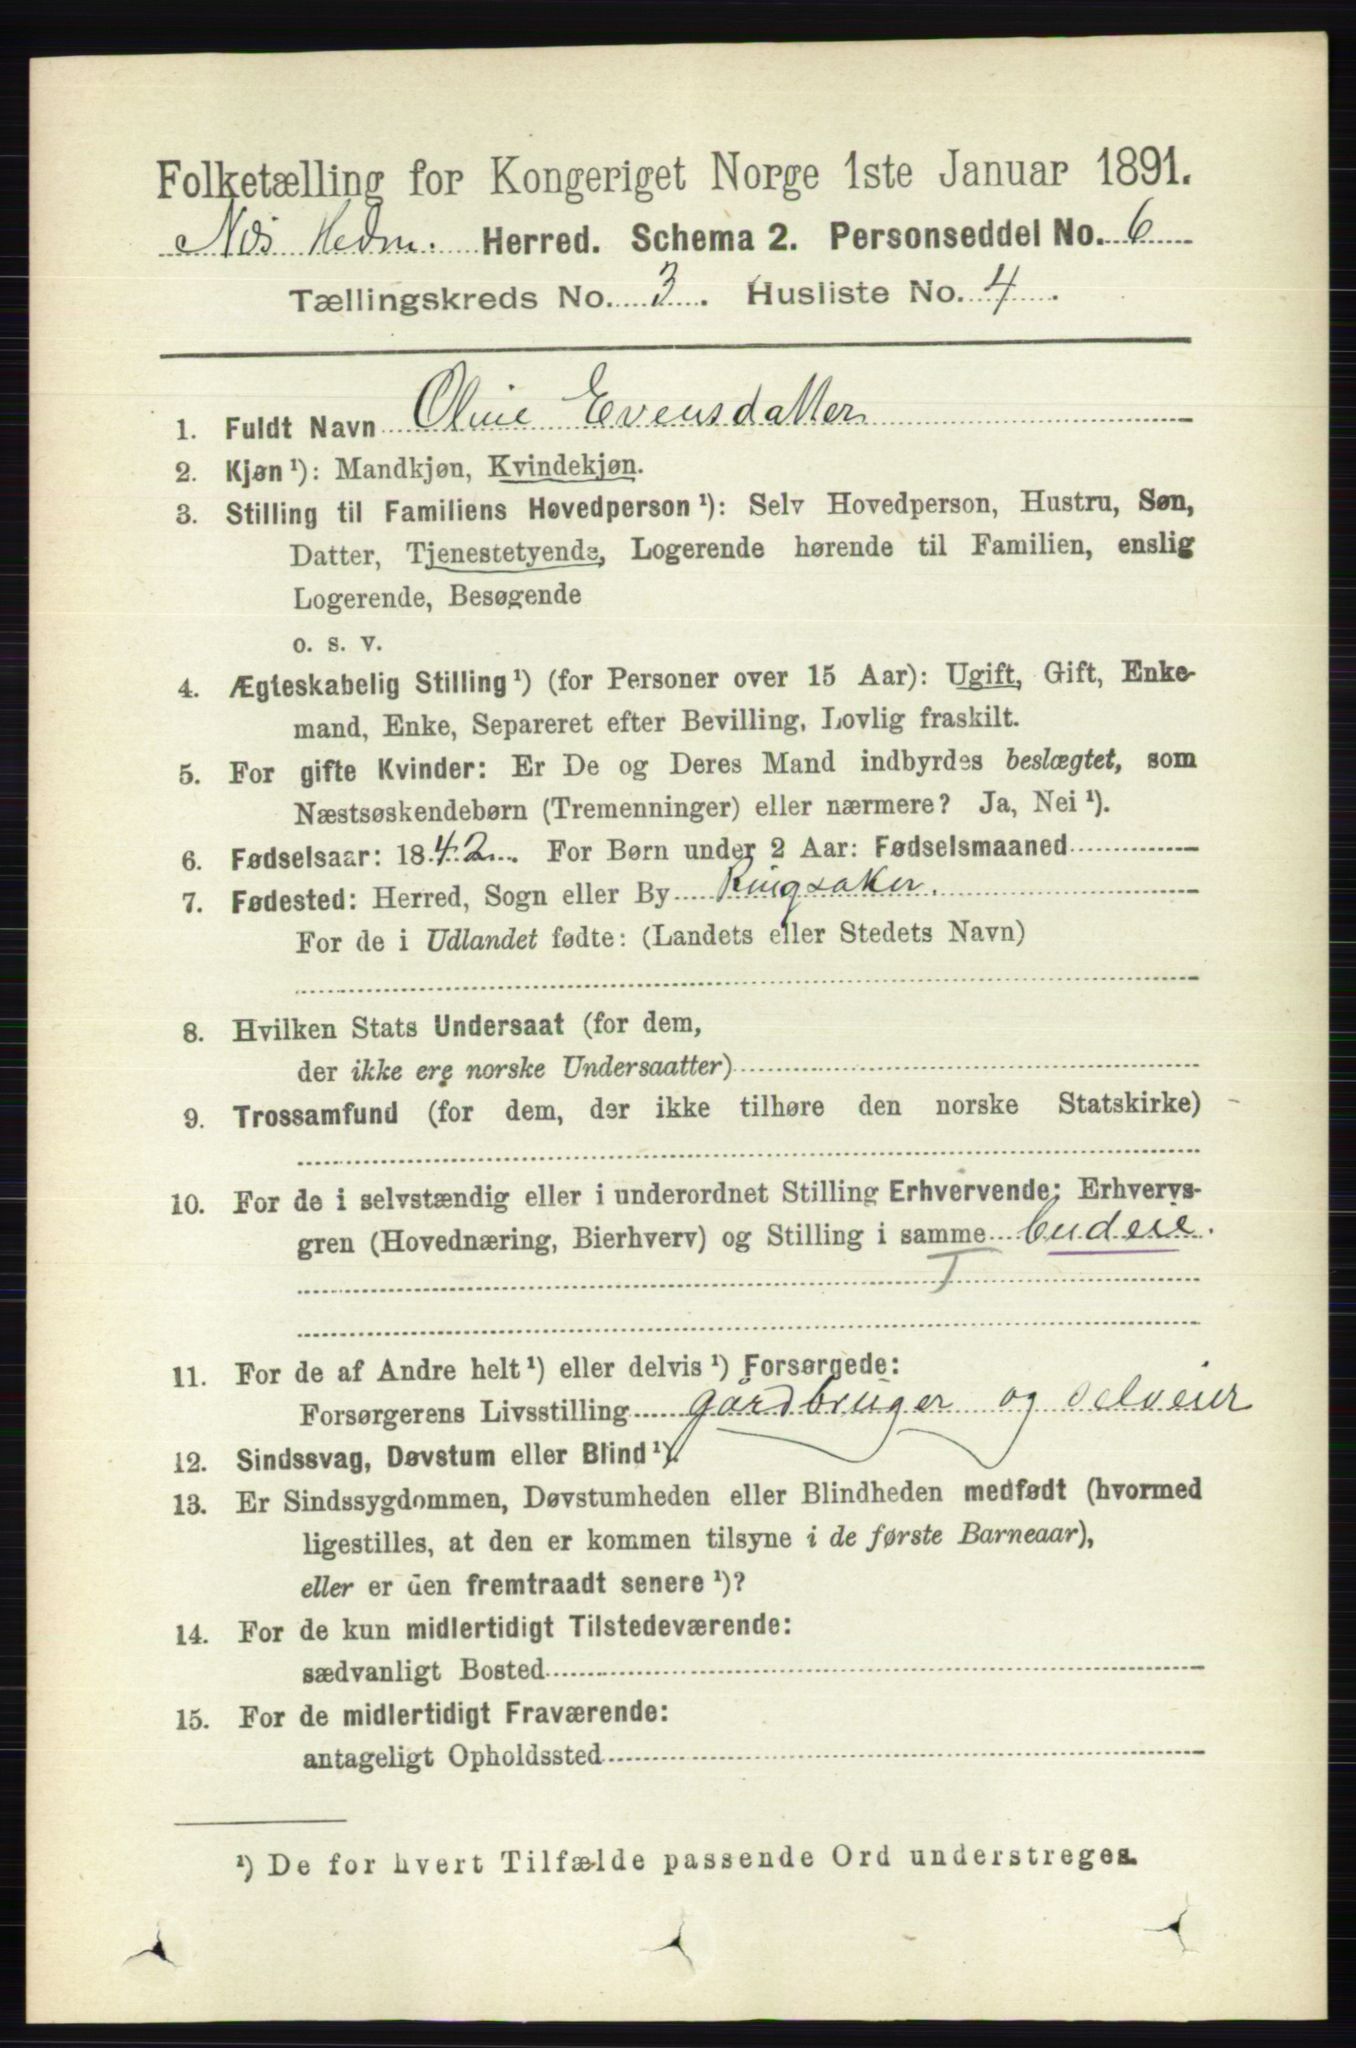 Folketælling for Kongeriget Norge 1ste Januar 1891.
Næs Hedm. Herred. Schema 2. Personseddel No. 6
Tællingskreds No. 3. Husliste No. 4.
1. Fuldt Navn Oline Evensdatter
2. Kjøn ¹): Mandkjøn, Kvindekjøn.
3. Stilling til Familiens Hovedperson ¹): Selv Hovedperson, Hustru, Søn,
Datter, Tjenestetyende, Logerende hørende til Familien, enslig
Logerende, Besøgende
o. s. v.
4. Ægteskabelig Stilling ¹) (for Personer over 15 Aar): Ugift, Gift, Enke-
mand, Enke, Separeret efter Bevilling, Lovlig fraskilt.
5. For gifte Kvinder: Er De og Deres Mand indbyrdes beslægtet, som
Næstsøskendebørn (Tremenninger) eller nærmere? Ja, Nei ¹).
6. Fødselsaar: 1842. For Børn under 2 Aar: Fødselsmaaned
7. Fødested: Herred, Sogn eller By Ringsaker.
For de i Udlandet fødte: (Landets eller Stedets Navn)
8. Hvilken Stats Undersaat (for dem,
der ikke ere norske Undersaatter)
9. Trossamfund (for dem, der ikke tilhøre den norske Statskirke)
10. For de i selvstændig eller i underordnet Stilling Erhvervende: Erhvervs-
gren (Hovednæring, Bierhverv) og Stilling i samme budeie.
T
11. For de af Andre helt ¹) eller delvis ¹) Forsørgede:
Forsørgerens Livsstilling gårdbruger og selveier
12. Sindssvag, Døvstum eller Blind ¹).
13. Er Sindssygdommen, Døvstumheden eller Blindheden medfødt (hvormed
ligestilles, at den er kommen tilsyne i de første Barneaar),
eller er den fremtraadt senere ¹)?
14. For de kun midlertidigt Tilstedeværende:
sædvanligt Bosted
15. For de midlertidigt Fraværende:
antageligt Opholdssted
¹) De for hvert Tilfælde passende Ord understreges.